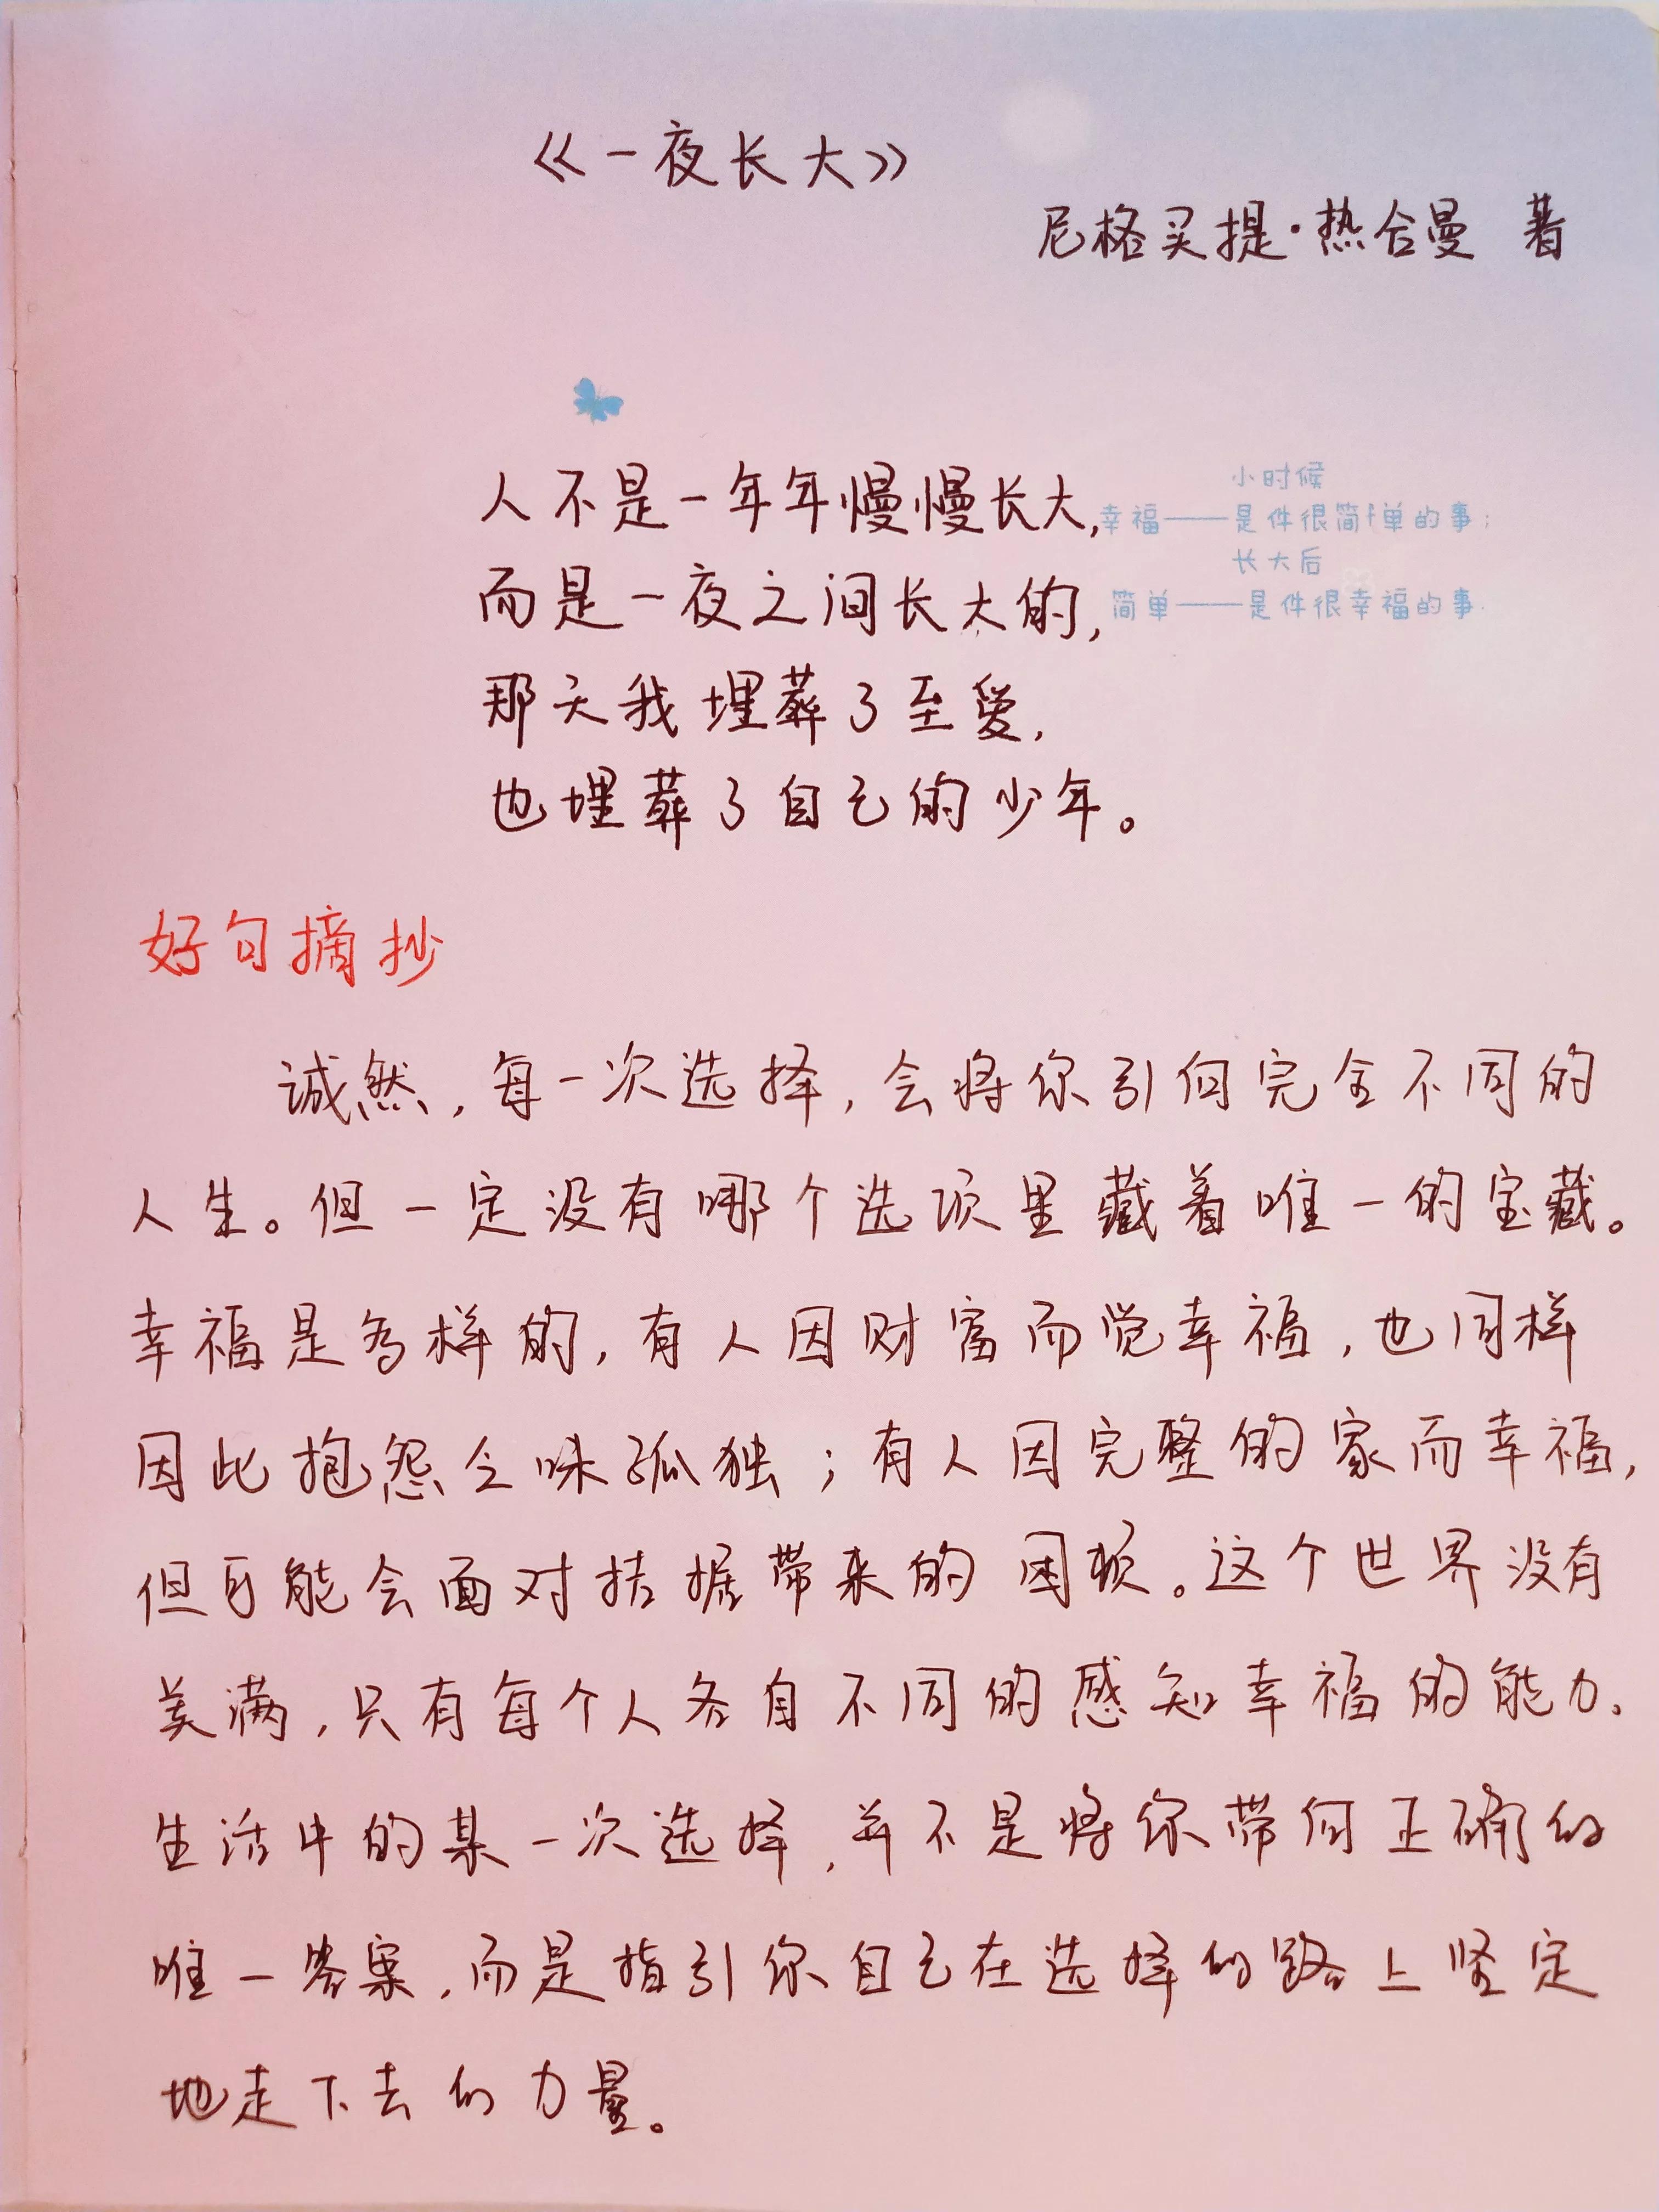 《一夜长大》
尼格买提·热合曼 著
人不是一年年慢慢长大,
而是一夜之间长大的,
那天我埋葬了至爱,
也埋葬了自己的少年。
小时候
幸福——是件很简单的事;
长大后
简单——是件很幸福的事.
好句摘抄
诚然,每一次选择,会将你引向完全不同的
人生。但一定没有哪个选项里藏着唯一的宝藏。
幸福是多样的,有人因财富而觉幸福,也同样
因此抱怨亲味孤独;有人因完整的家而幸福,
但可能会面对拮据带来的困顿。这个世界没有
美满,只有每个人各自不同的感知幸福的能力。
生活中的某一次选择,并不是将你带向正确的
唯一答案,而是指引你自己在选择的路上坚定
地走下去的力量。